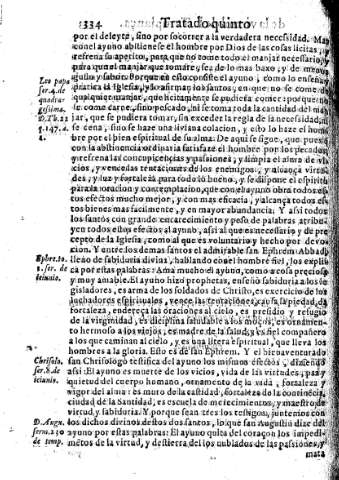 1334 Tratado quinto
por el deleyte, sino por socorrer a la verdadera necessidad. Mas
con el ayuno abstienese el hombre por Dios de las cosas licitas, y
refrena su apetito, para que no come todo el manjar necessario, y
para que el manjar que tomare, sea de lo mas baxo, y de menos
gusto y sabor. Porque en esto consiste el ayuno, como lo enseña
y practica la Iglesia, y lo afirman los santos, en que no se come de
qualquier manjar, que licitamente se pudiera comer: porque no
se come carne, sino pescado, ni se coma toda la cantidad del man-
jar, que se pudiera tomar, sin exceder la regla de la necessidad, ni
se cena, sino se haze una liviana colacion, y esto lo haze el hom-
bre por el bien espiritual de su alma. De aqui se sigue, que pues
con la abstinencia ordinaria satisfaze el hombre por los pecados,
y refrena las concupiscencias y passiones, y limpia el alma de vi-
cios, y vence las tentaciones de los enemigos, y alcança virtu-
des, y luz y fortaleza para todo lo bueno, y se dispone el espiritu
para la oracion y contemplacion, que con el ayuno obra todos es-
tos efectos mucho mejor, y con mas eficacia, y alcança todos es-
tos bienes mas facilmente, y en mayor abundancia: Y assi todos
los santos con grande encarecimiento y peso de palabras atribu-
yen todos estos efectos al ayuno, assi al que es necessario y de pre-
cepto de la Iglesia, como al que es voluntario y hecho por devo-
cion. Y entre los demas santos el admirable san Ephrem Abbad
lleno de sabiduria divina, hablando con el hombre fiel, los expli-
ca por estas palabras: Ama mucho el ayuno, como a cosa preciosa
y muy amable. El ayuno hizo prophetas, enseñó sabiduria a los le-
gisladores, es arma de los soldados de Christo, es exercicio de los
luchadores espirituales, vence las tentaciones, causa la piedad, da
fortaleza, endereça las oraciones al cielo, es presidio y refugio
de la virginidad, es diciplina saludable a los moços, es ornamen-
to hermoso a los viejos, es madre de la salud, es fiel compañero
a los que caminan al cielo, y es una litera espiritual, que lleva los
hombres a la gloria. Esto es de san Ephrem. Y el bienaventurado
san Chrisologo testifica del ayuno los mismos efetos, diziendo
assi: El ayuno es muerte de los vicios, vida de las virtudes, paz y
quietud del cuerpo humano, ornamento de la vida, fortaleza y
vigor del alma: es muro de la castidad, fortaleza de la continēcia,
ciudad de la Santidad, es escuela de merecimientos, y maestro de
virtud y sabiduria. Y porque sean tres los testigos, juntemos con
los dichos divinos destos dos santos, lo que san Augustin dize del
ayuno por estas palabras: El ayuno quita del coraçon los impedi-
mētos de la virtud, y destierra del los nublados de las passiones, y
mata
Leo papa
ser. 4. de
quadra-
gesima.
D. Th. 22
q. 147. a.
Ephre. to.
1. ser. de
ieiunio.
Chrisolo.
ser. 8. de
ieiunis.
D. Augu.
serm. 230
de temp.